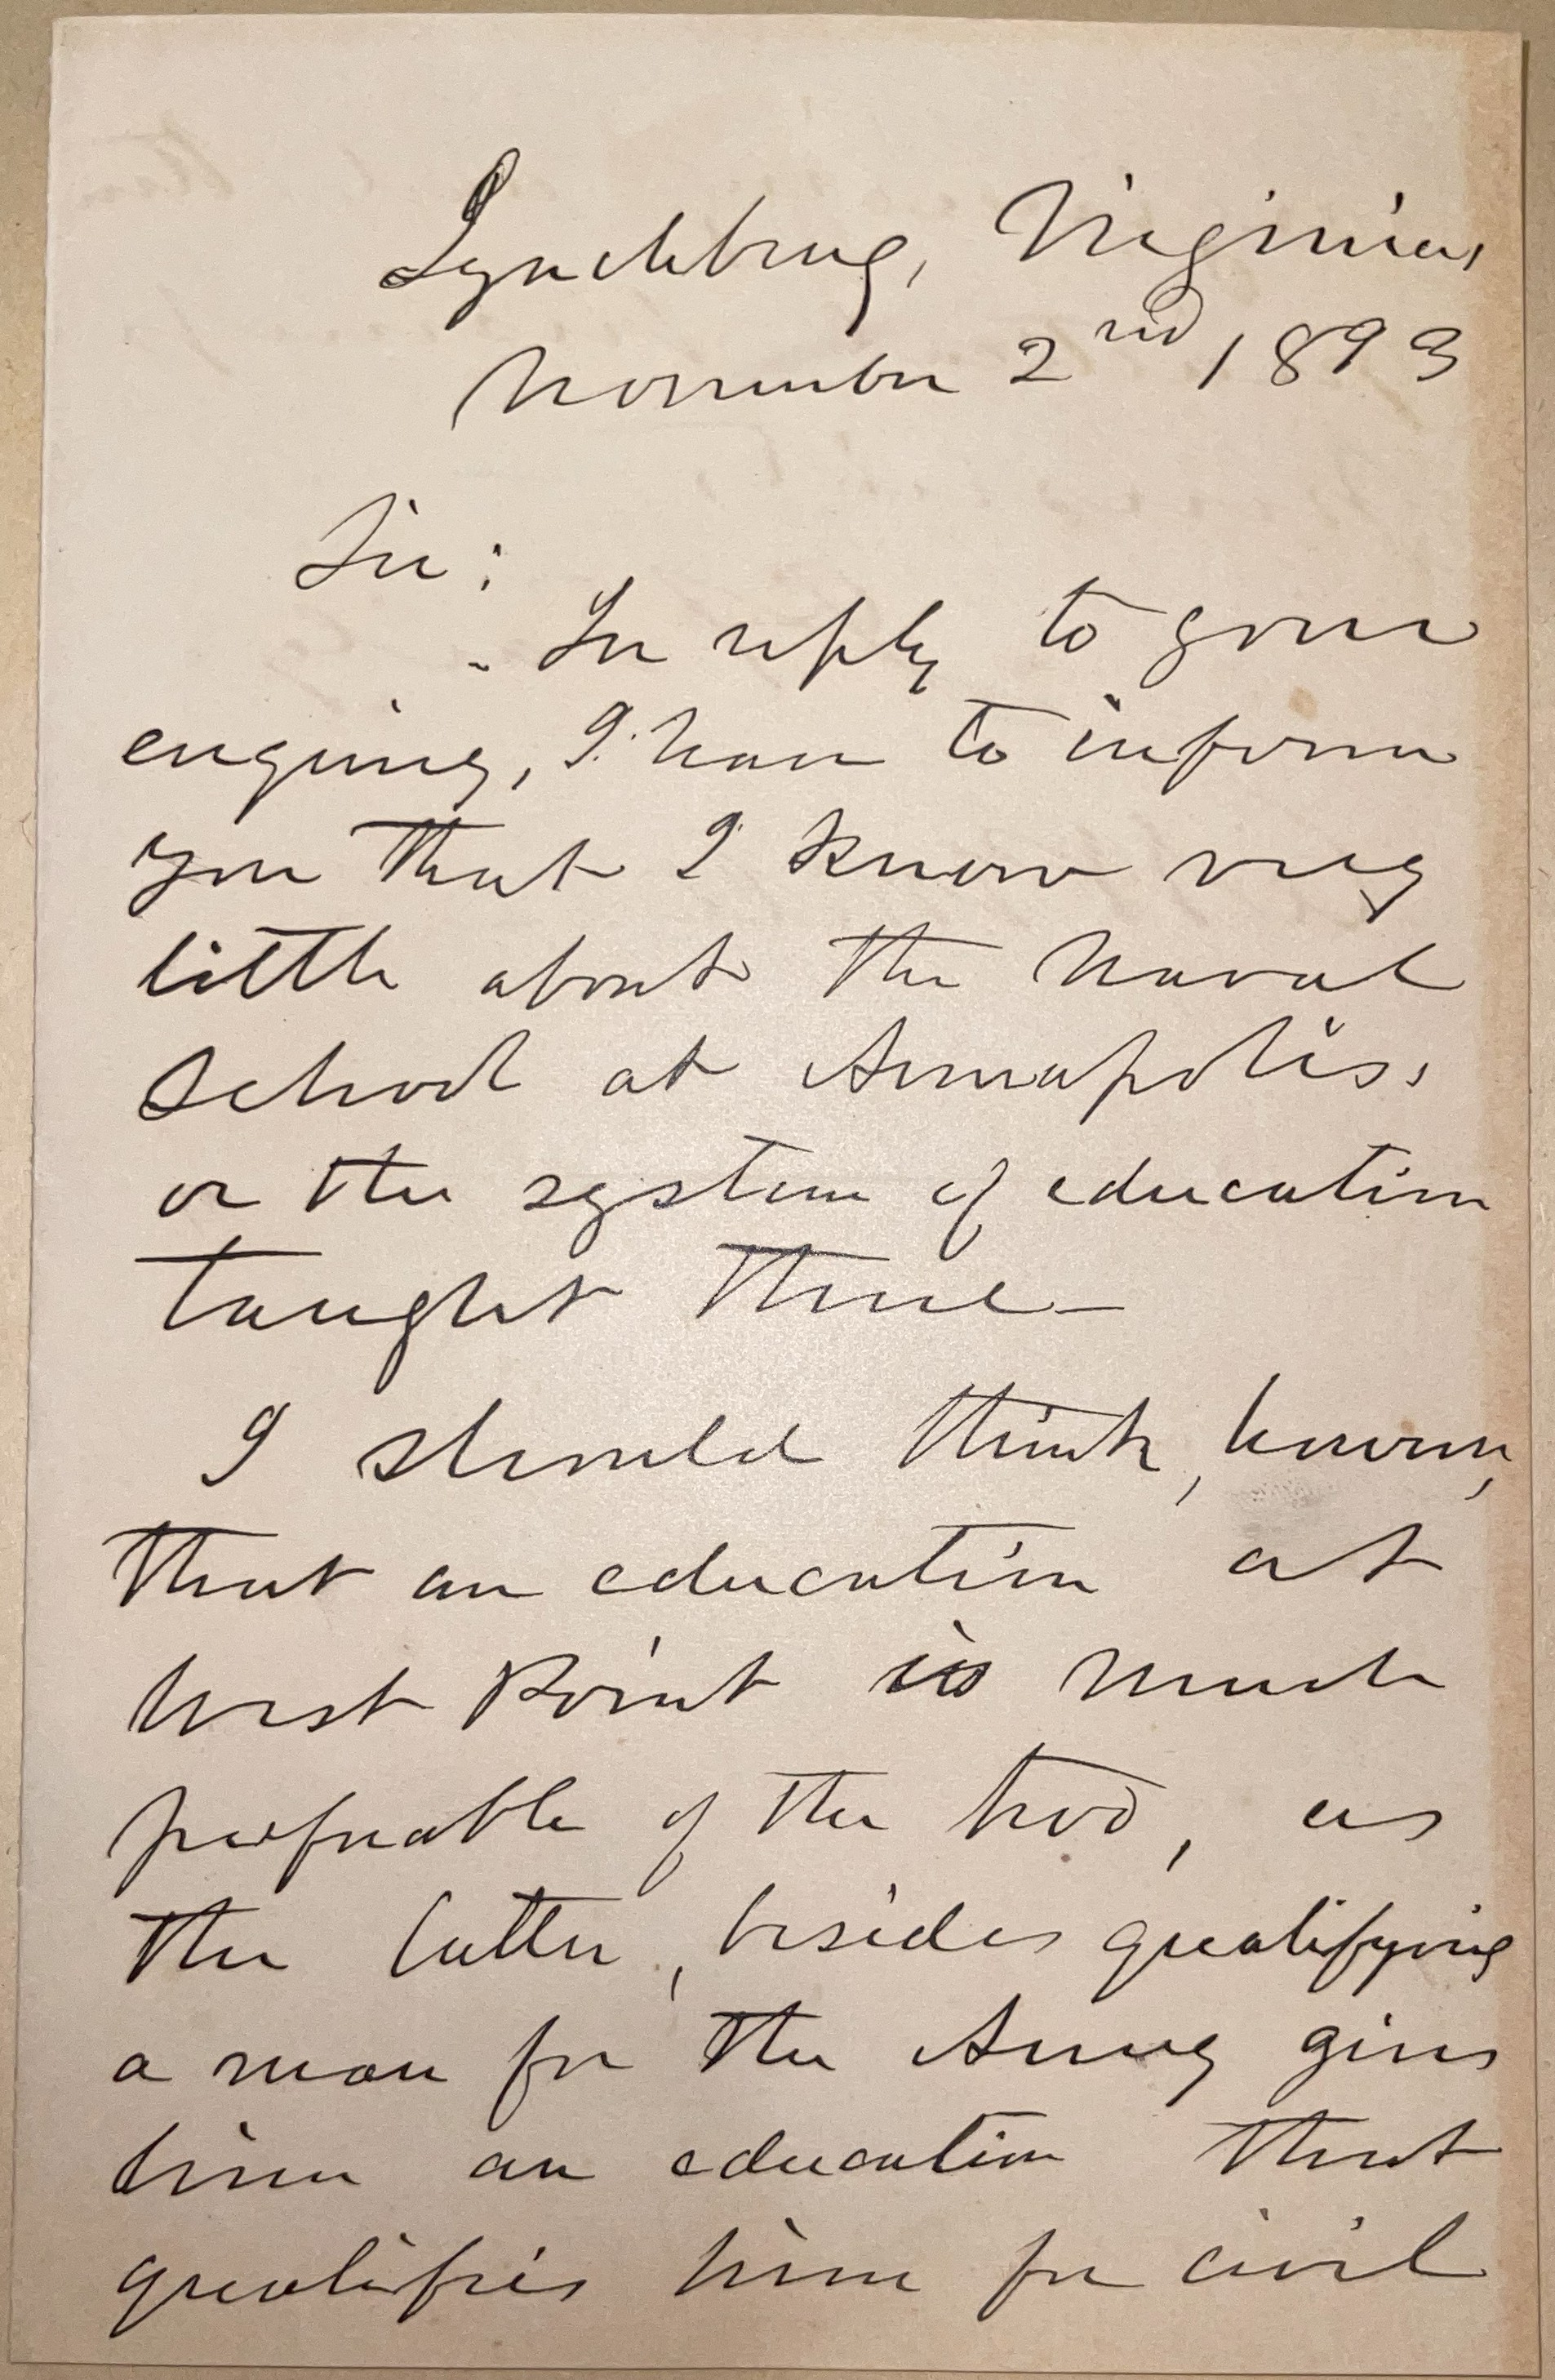 Lynchburg, Virginia,
November 2nd, 1893
Sir:
- In reply to your
enquiry, I have to inform
you that I know very
little about the Naval
School at Annapolis,
or the system of education
taught there—
I should think, however,
that an education at
West Point is much
preferable of the two, as
the latter, besides qualifying
a man for the Army gives
him an education that
qualifies him for civil